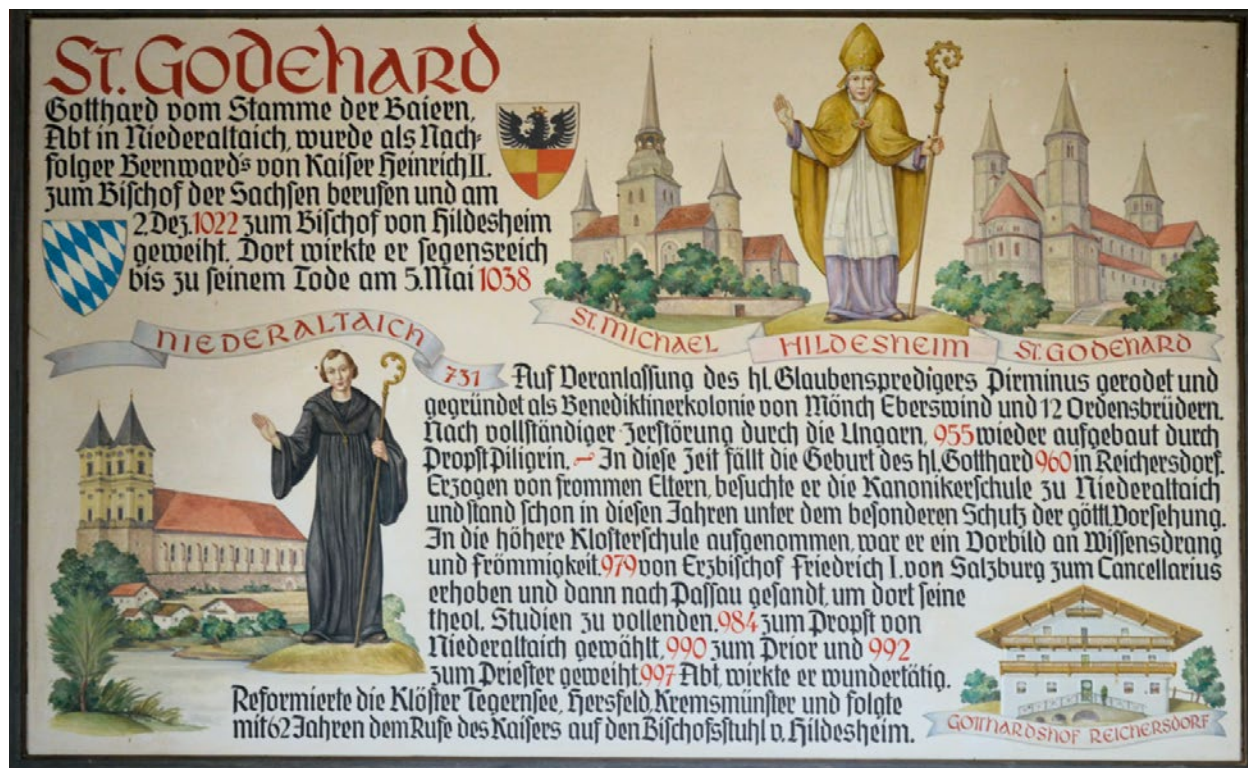 St. Godehard
Gotthard vom Stamme der Baiern,
Abt in Niederaltaich, wurde als Nach-
folger Bernward's von Kaiser Heinrich II.
zum Bischof der Sachsen berufen und am
2. Dez. 1022 zum Bischof von Hildesheim
geweiht. Dort wirkte er segensreich
bis zu seinem Tode am 5. Mai 1038
ST. MICHAEL
HILDESHEIM
ST. GODEHARD
NIEDERALTAICH
731 Auf Veranlassung des hl. Glaubenspredigers Pirminus gerodet und
gegründet als Benediktinerkolonie von Mönch Eberswind und 12 Ordensbrüdern.
Nach vollständiger Zerstörung durch die Ungarn, 955 wieder aufgebaut durch
Propst Piligrin. ~ In diese Zeit fällt die Geburt des hl. Gotthard 960 in Reichersdorf.
Erzogen von frommen Eltern, besuchte er die Kanonikerschule zu Niederaltaich
und stand schon in diesen Jahren unter dem besonderen Schutz der göttl. Vorsehung.
In die höhere Klosterschule aufgenommen, war er ein Vorbild an Wissensdrang
und Frömmigkeit. 979 von Erzbischof Friedrich I. von Salzburg zum Cancellarius
erhoben und dann nach Passau gesandt, um dort seine
theol. Studien zu vollenden. 984 zum Propst von
Niederaltaich gewählt, 990 zum Prior und 992
zum Priester geweiht. 997 Abt, wirkte er wundertätig.
Reformierte die Klöster Tegernsee, Hersfeld, Kremsmünster und folgte
mit 62 Jahren dem Rufe des Kaisers auf den Bischofsstuhl v. Hildesheim.
GOTTHARDSHOF REICHERSDORF